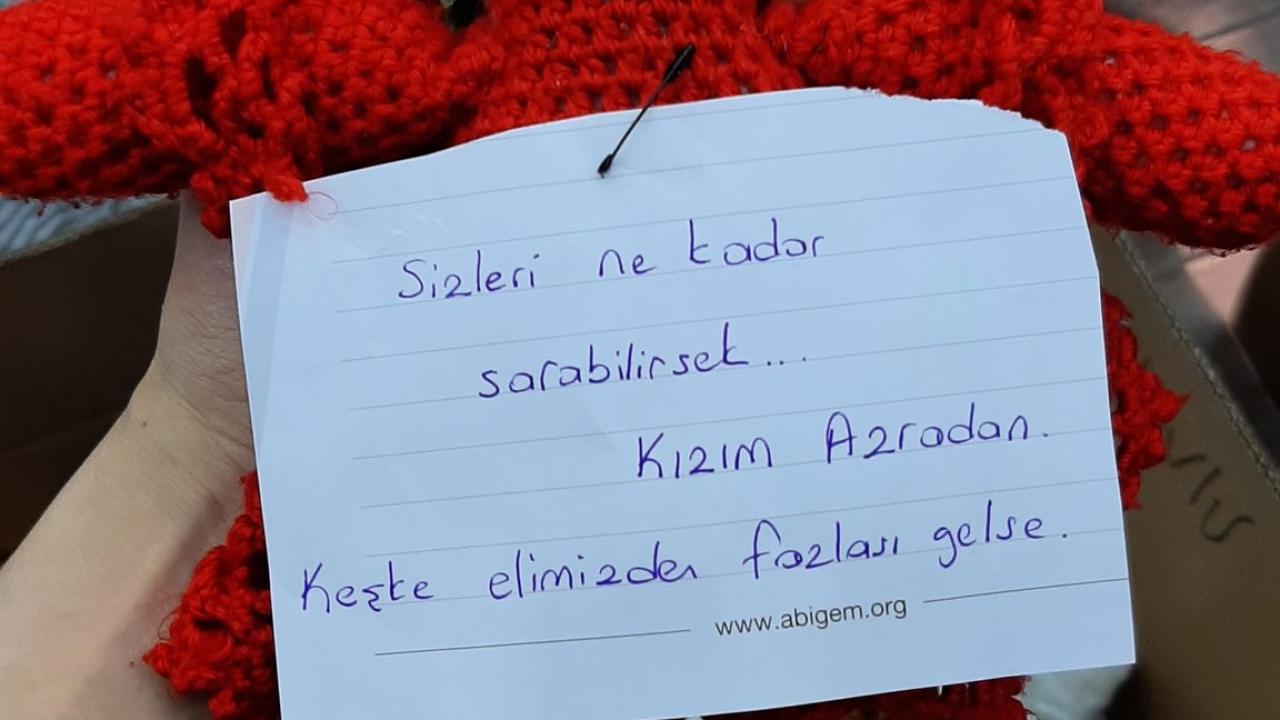 Sizleri ne kadar
sarabilirsek...
Kızım Azradan.
Keşke elimizden fazlası gelse.
www.abigem.org